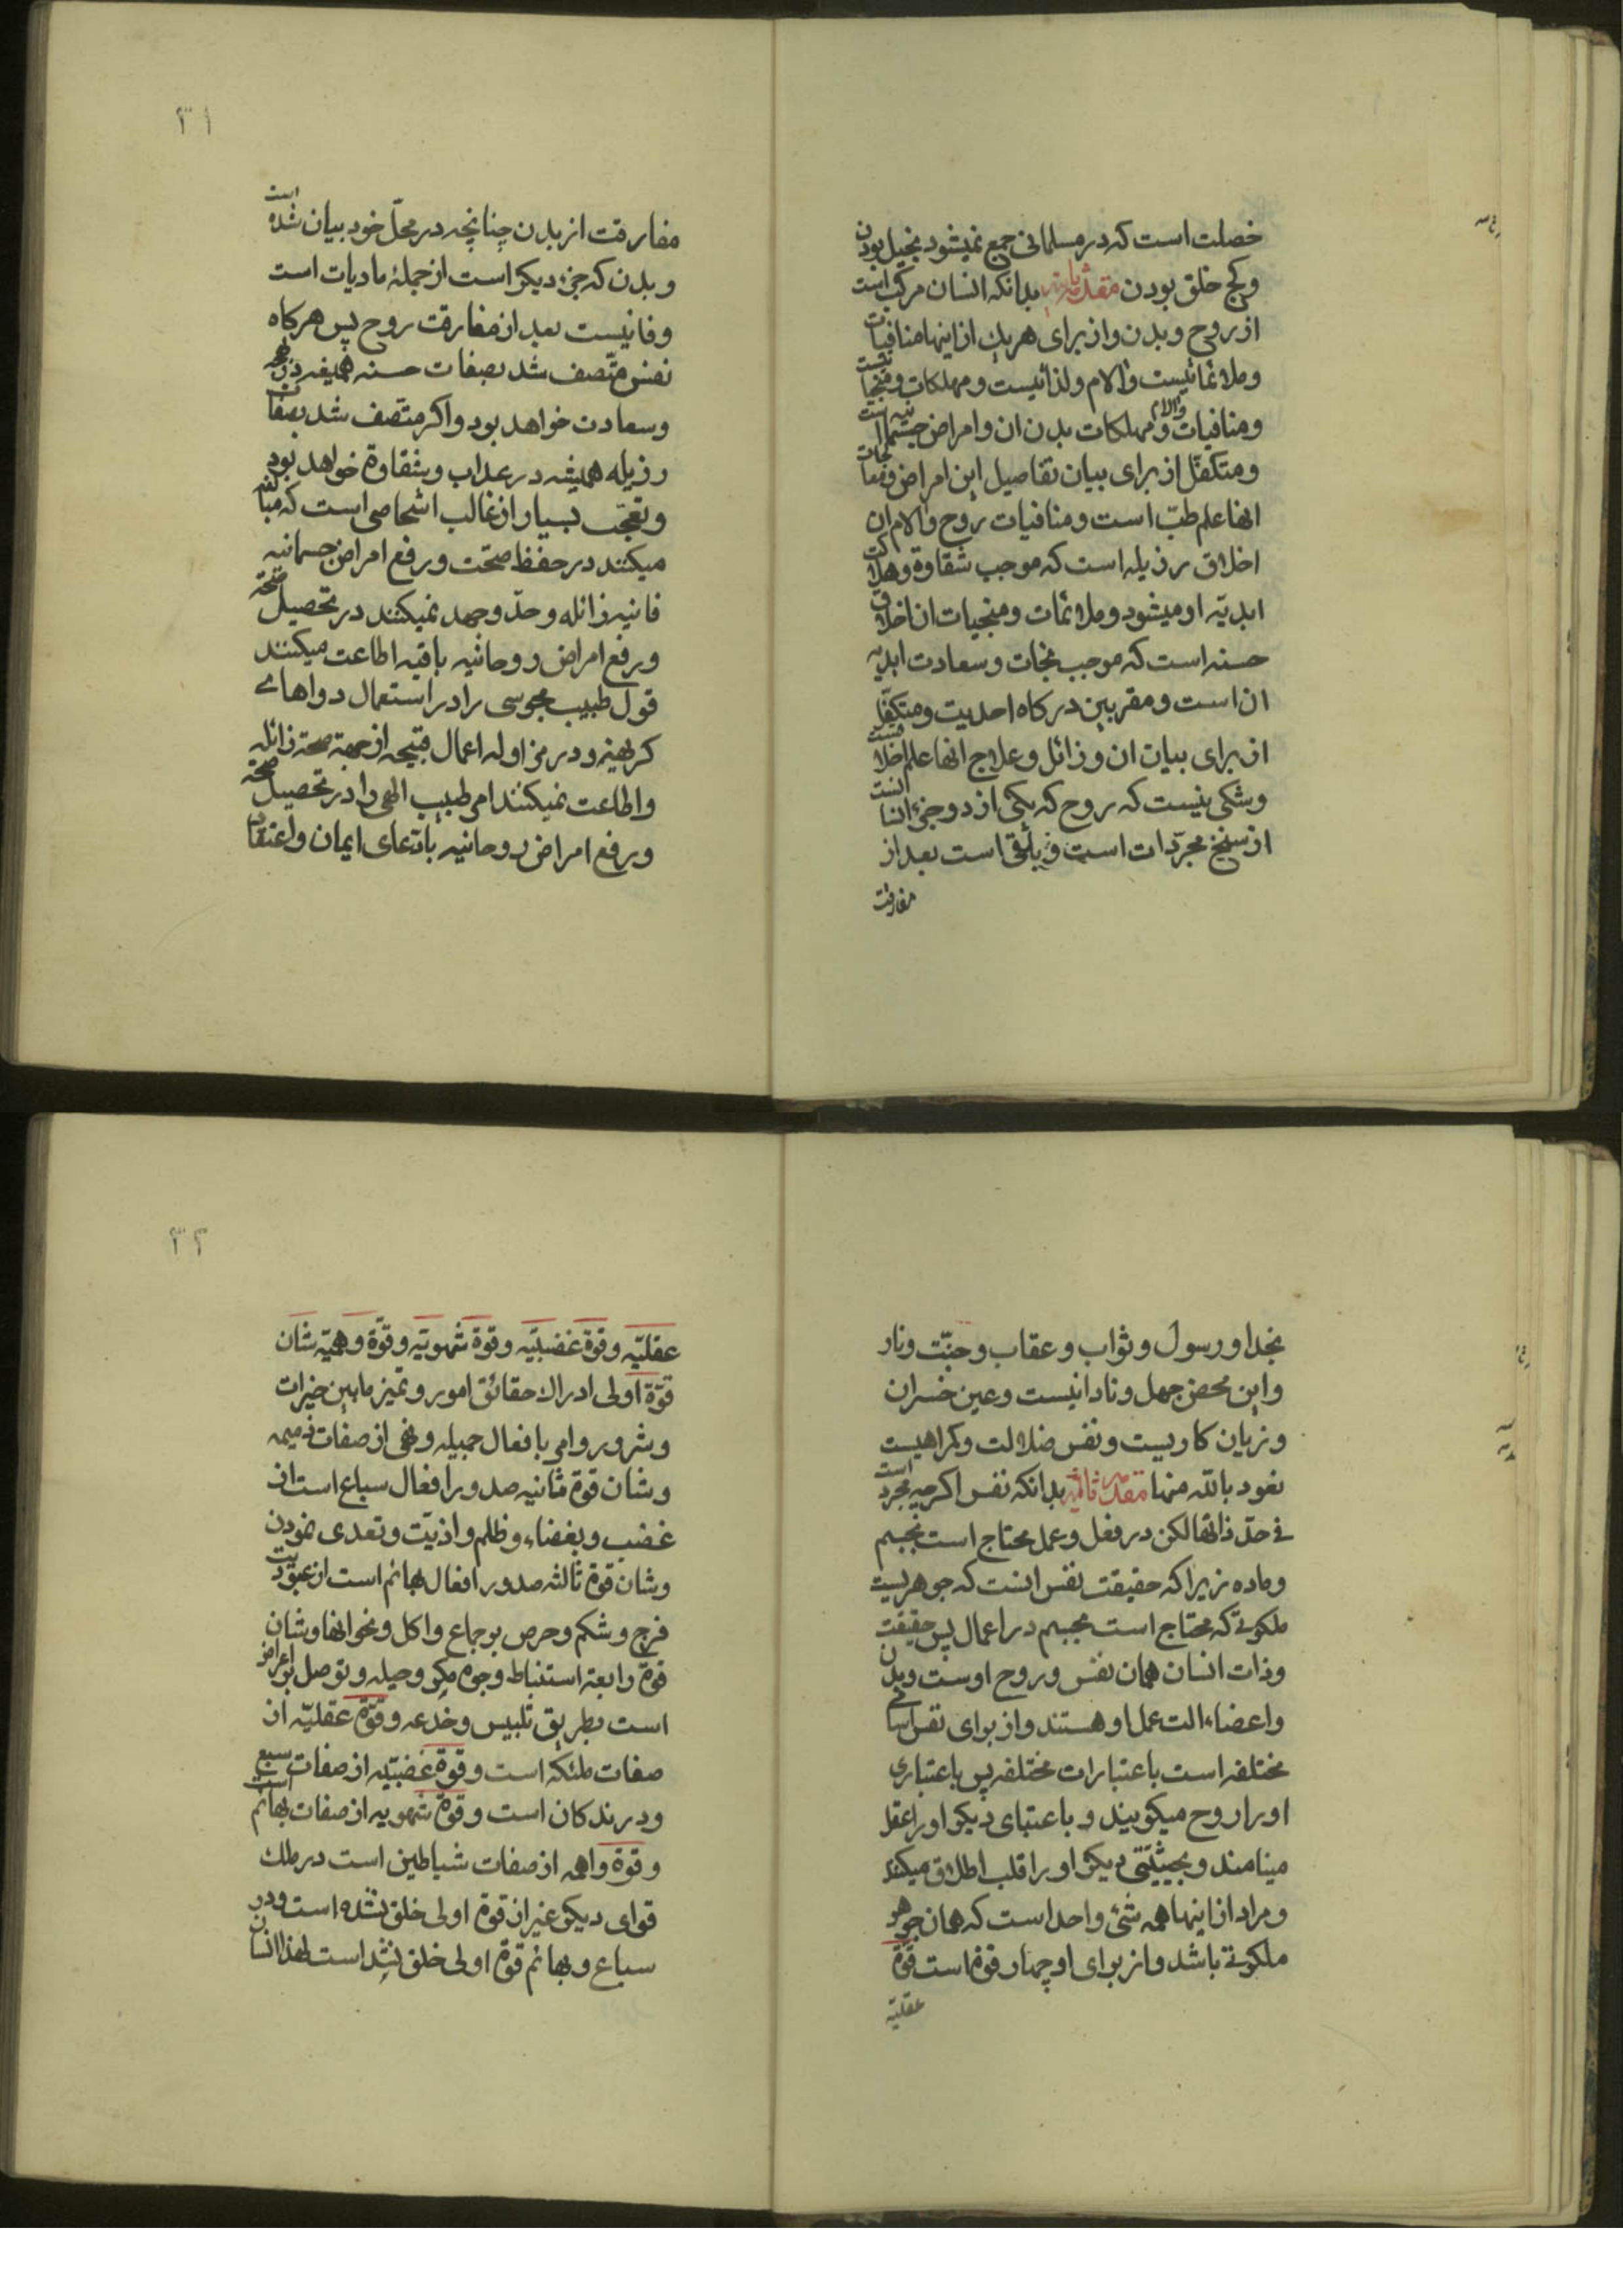 خصلت است که در مسلمانی جمع نمیشود بخیل بودن
و کج خلق بودن مقدمه ثانیه بدانکه انسان مرکب است
از روح و بدن و از برای هر یك از اینها منافیات
و ملائماتیست و الام و لذائیست و مهلکات و منجیاتست
و منافیات و الام و مهلکات بدن ان و امراض جسمانیه است
و متکفل از برای بیان تفاصیل این امراض و معالجات
انها علم طبّ است و منافیات روح و الام ان
اخلاق رذیله است که موجب شقاوة و هلاکت
ابدیّه او میشود و ملائمات و منجیات ان اخلاق
حسنه است که موجب نجات و سعادت ابدیه
ان است و مقربین درکاه احدیت و متکفّل
از برای بیان ان رذائل و علاج انها علم اخلاقست
و شکی نیست که روح که یکی از دو جزء انسانست
از سنخ مجرّدات است و باقی است بعد از
مفارقت
۳۱
مفارقت از بدن چنانچه در محلّ خود بیان شده است
و بدن که جزء دیکر است از جملهٔ مادیات است
و فانیست بعد از مفارقت روح پس هرکاه
نفس متّصف شد بصفات حسنه همیشه در بهجت
و سعادت خواهد بود و اکر متّصف شد بصفات
رذیله همیشه در عذاب و شقاوة خواهد بود
و تعجّب بسیار از غالب اشخاصی است که مبالغه
میکنند در حفظ صحّت و رفع امراض جسمانیه
فانیه زائله و جدّ و جهد نمیکنند در تحصیل صحّة
و رفع امراض روحانیه باقیه اطاعت میکنند
قول طبیب مجوسی را در استعمال دواهای
کریهه و در مزاوله اعمال قبیحه از جهة صحة زائله
و اطاعت نمیکنند امر طبیب الهی را در تحصیل صحّة
و رفع امراض روحانیه با ادعای ایمان و اعتقاد
بخدا و رسول و ثواب و عقاب و جنّت و نار
و این محض جهل و نادانیست و عین خسران
و زیان کاریست و نفس ضلالت و کمراهیست
نعوذ بالله منها مقدمه ثالثه بدانکه نفس اکرچه مجرد است
فی حدّ ذاتها لکن در فعل و عمل محتاج است بجسم
و ماده زیرا که حقیقت نفس اینست که جوهریست
ملکوتی که محتاج است بجسم در اعمال پس حقیقت
و ذات انسان همان نفس و روح اوست و بدن
و اعضاء الت عمل او هستند و از برای نفس اسامی
مختلفه است باعتبارات مختلفه پس باعتباری
او را روح میکویند و باعتبای دیکر او را عقل
مینامند و بحیثیّتی دیکر او را قلب اطلاق میکنند
و مراد از اینها همه شیء واحد است که همان جوهر
ملکوتی باشد و از برای او چهار قوّة است قوّة
عقلیّه
۳۲
عقلیّه و قوة غضبیّه و قوة شهویّه و قوّة وهمیّه شان
قوّة اولی ادراك حقائق امور و تمیز ما بین خیرات
و شرور و امر بافعال جمیله و نهی از صفات ذمیمه
و شان قوة ثانیه صدور افعال سباع است از
غضب و بغضاء و ظلم و اذیّت و تعدی نمودن
و شان قوة ثالثه صدور افعال بهائم است از عبودیت
فرج و شکم و حرص بر جماع و اکل و نحو انها و شان
قوة رابعة استنباط وجوه مکر و حیله و توصل بر اغراض
است بطریق تلبیس و خدعه و قوّة عقلیّه از
صفات ملئکه است و قوة غضبیّه از صفات سبع
و درندکان است و قوة شهویه از صفات بهائم است
و قوة واهمه از صفات شیاطین است در ملك
قوای دیکر غیر از قوة اولی خلق نشده است و در
سباع و بهائم قوة اولی خلق نشد است لهذا انسان